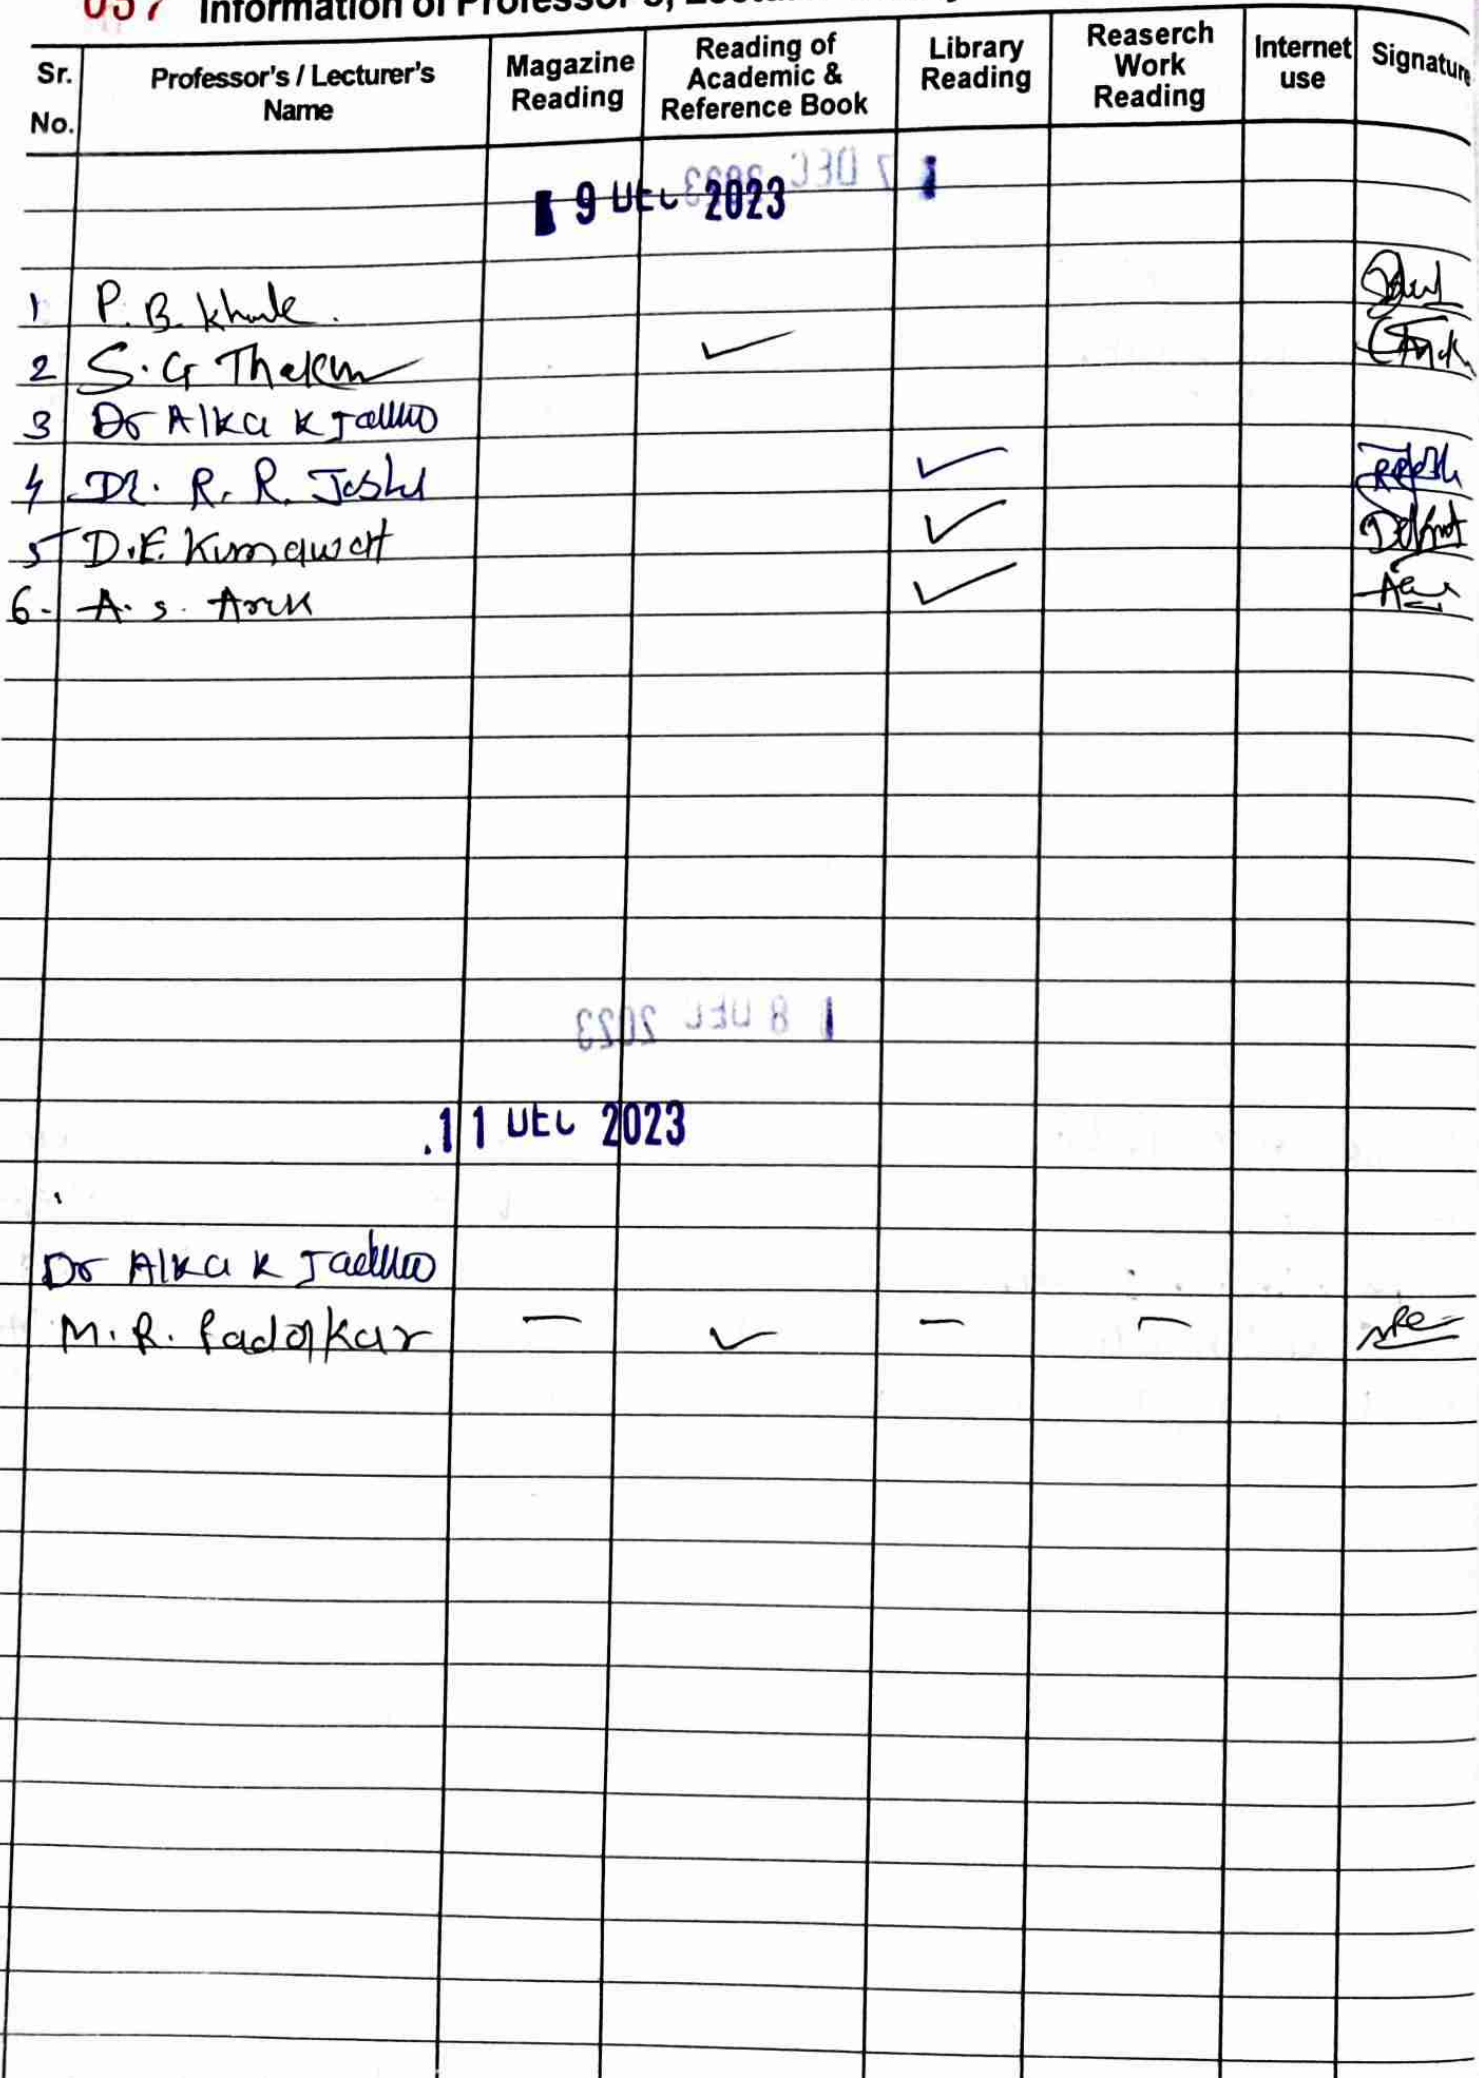 057 Information of Professor's,
Sr. No. Professor's / Lecturer's Name Magazine Reading Reading of Academic & Reference Book Library Reading Reaserch Work Reading Internet use Signature
9 DEC 2023
1 P. B. Khule.
2 S. G Thakur
3 Dr Alka K Jadhao
4 Dr. R. R. Joshi
5 D. E. Kumawat
6. A. S.
11 DEC 2023
Dr Alka K Jadhao
M. R. Padolkar